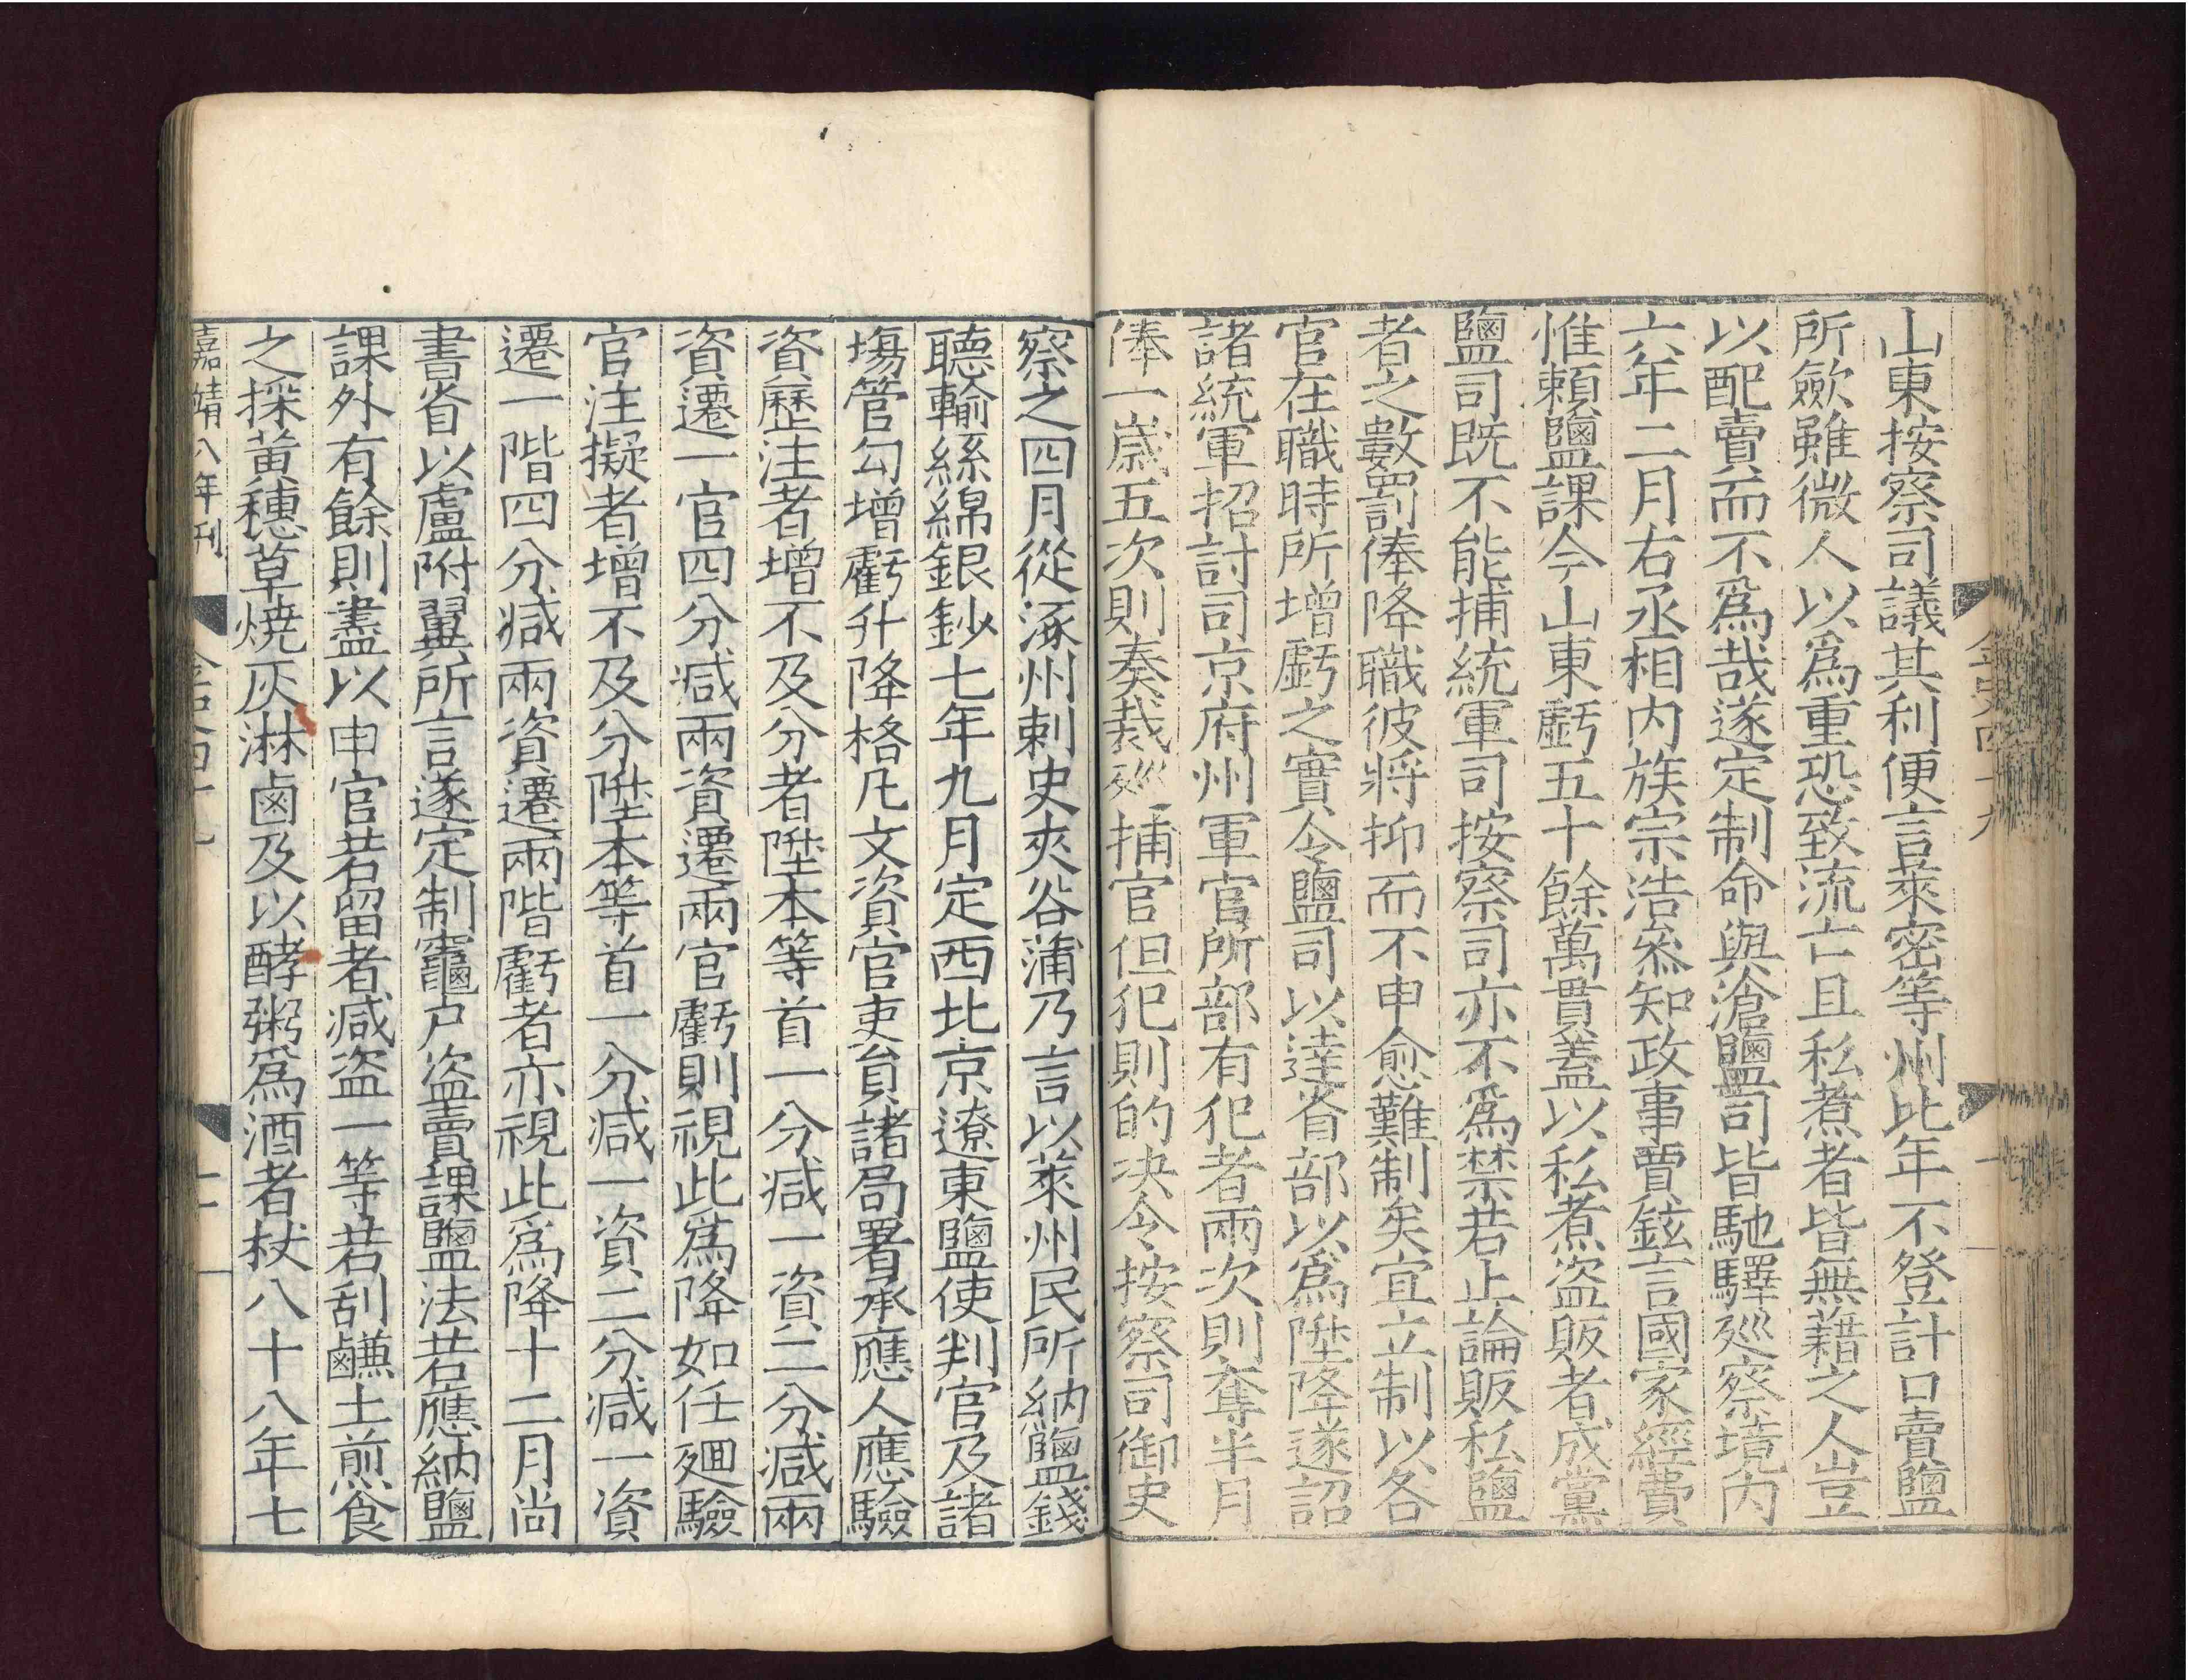 山東按察司議其利便言萊密等州比年不登計口賣鹽
所斂雖微人以爲重恐致流亡且私煮者皆無藉之人豈
以配賣而不爲哉遂定制命與滄鹽司皆馳驛廵察境内
六年二月右丞相内族宗浩叅知政事賈鉉言國家經費
惟賴鹽課今山東虧五十餘萬貫蓋以私煮盜販者成黨
鹽司既不能捕統軍司按察司亦不爲禁若止論販私鹽
者之數罰俸降職彼將抑而不申愈難制矣宜立制以各
官在職時所增虧之實令鹽司以達省部以爲陞降遂詔
諸統軍招討司京府州軍官所部有犯者兩次則奪半月
俸一歲五次則奏裁廵捕官但犯則的决令按察司御史
察之四月從涿州刺史夾谷蒲乃言以萊州民所納鹽錢
聽輸絲綿銀鈔七年九月定西北京遼東鹽使判官及諸
塲管勾增虧升降格凡文資官吏貟諸局署承應人應驗
資歷注者增不及分者陞本等首一分减一資二分减兩
資遷一官四分减兩資遷兩官虧則視此爲降如任廻驗
官注擬者增不及分陞本等首一分减一資二分减一資
遷一階四分减兩資遷兩階虧者亦視此爲降十二月尚
書省以盧附翼所言遂定制竈户盜賣課鹽法若應納鹽
課外有餘則盡以申官若留者减盜一等若刮鹻土煎食
之採黄穗草燒灰淋鹵及以酵粥爲酒者杖八十八年七
嘉靖八年刊
金史四十九